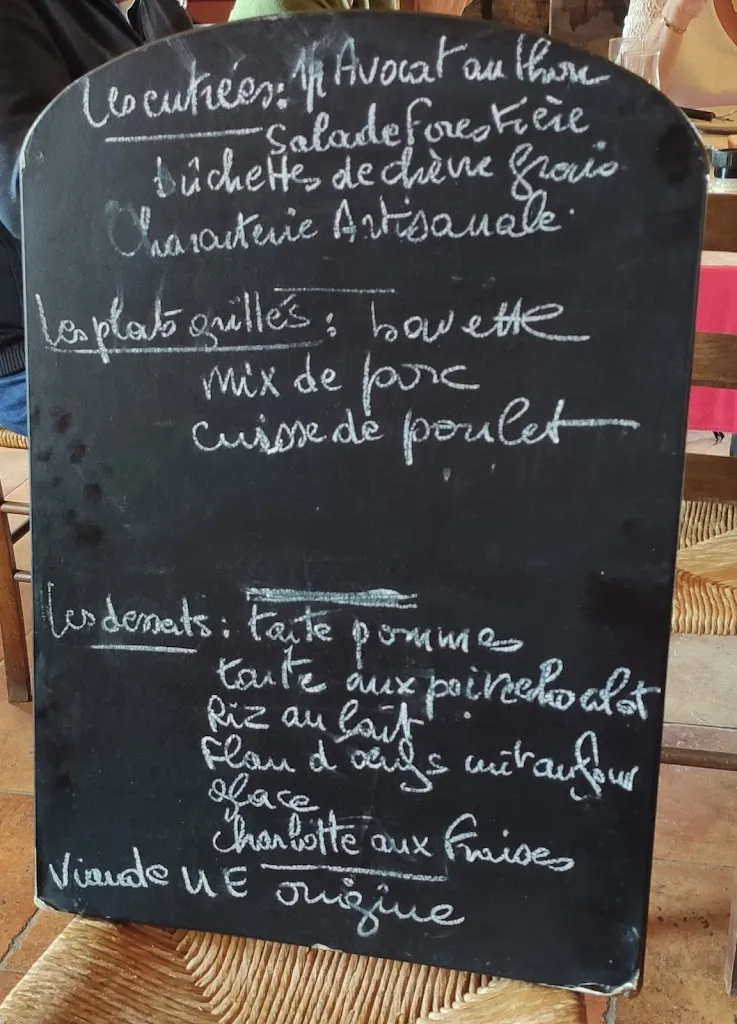 Les entrées: ½ Avocat au thon
Salade Forestière
bûchettes de chèvre frais
Charcuterie Artisanale
Les plats grillés: bavette
mix de porc
cuisse de poulet
Les desserts: tarte pommes
tarte aux poire chocolat
Riz au lait
Flan d'oeufs cuit au four
glace
Charlotte aux Fraises
Viande UE origine